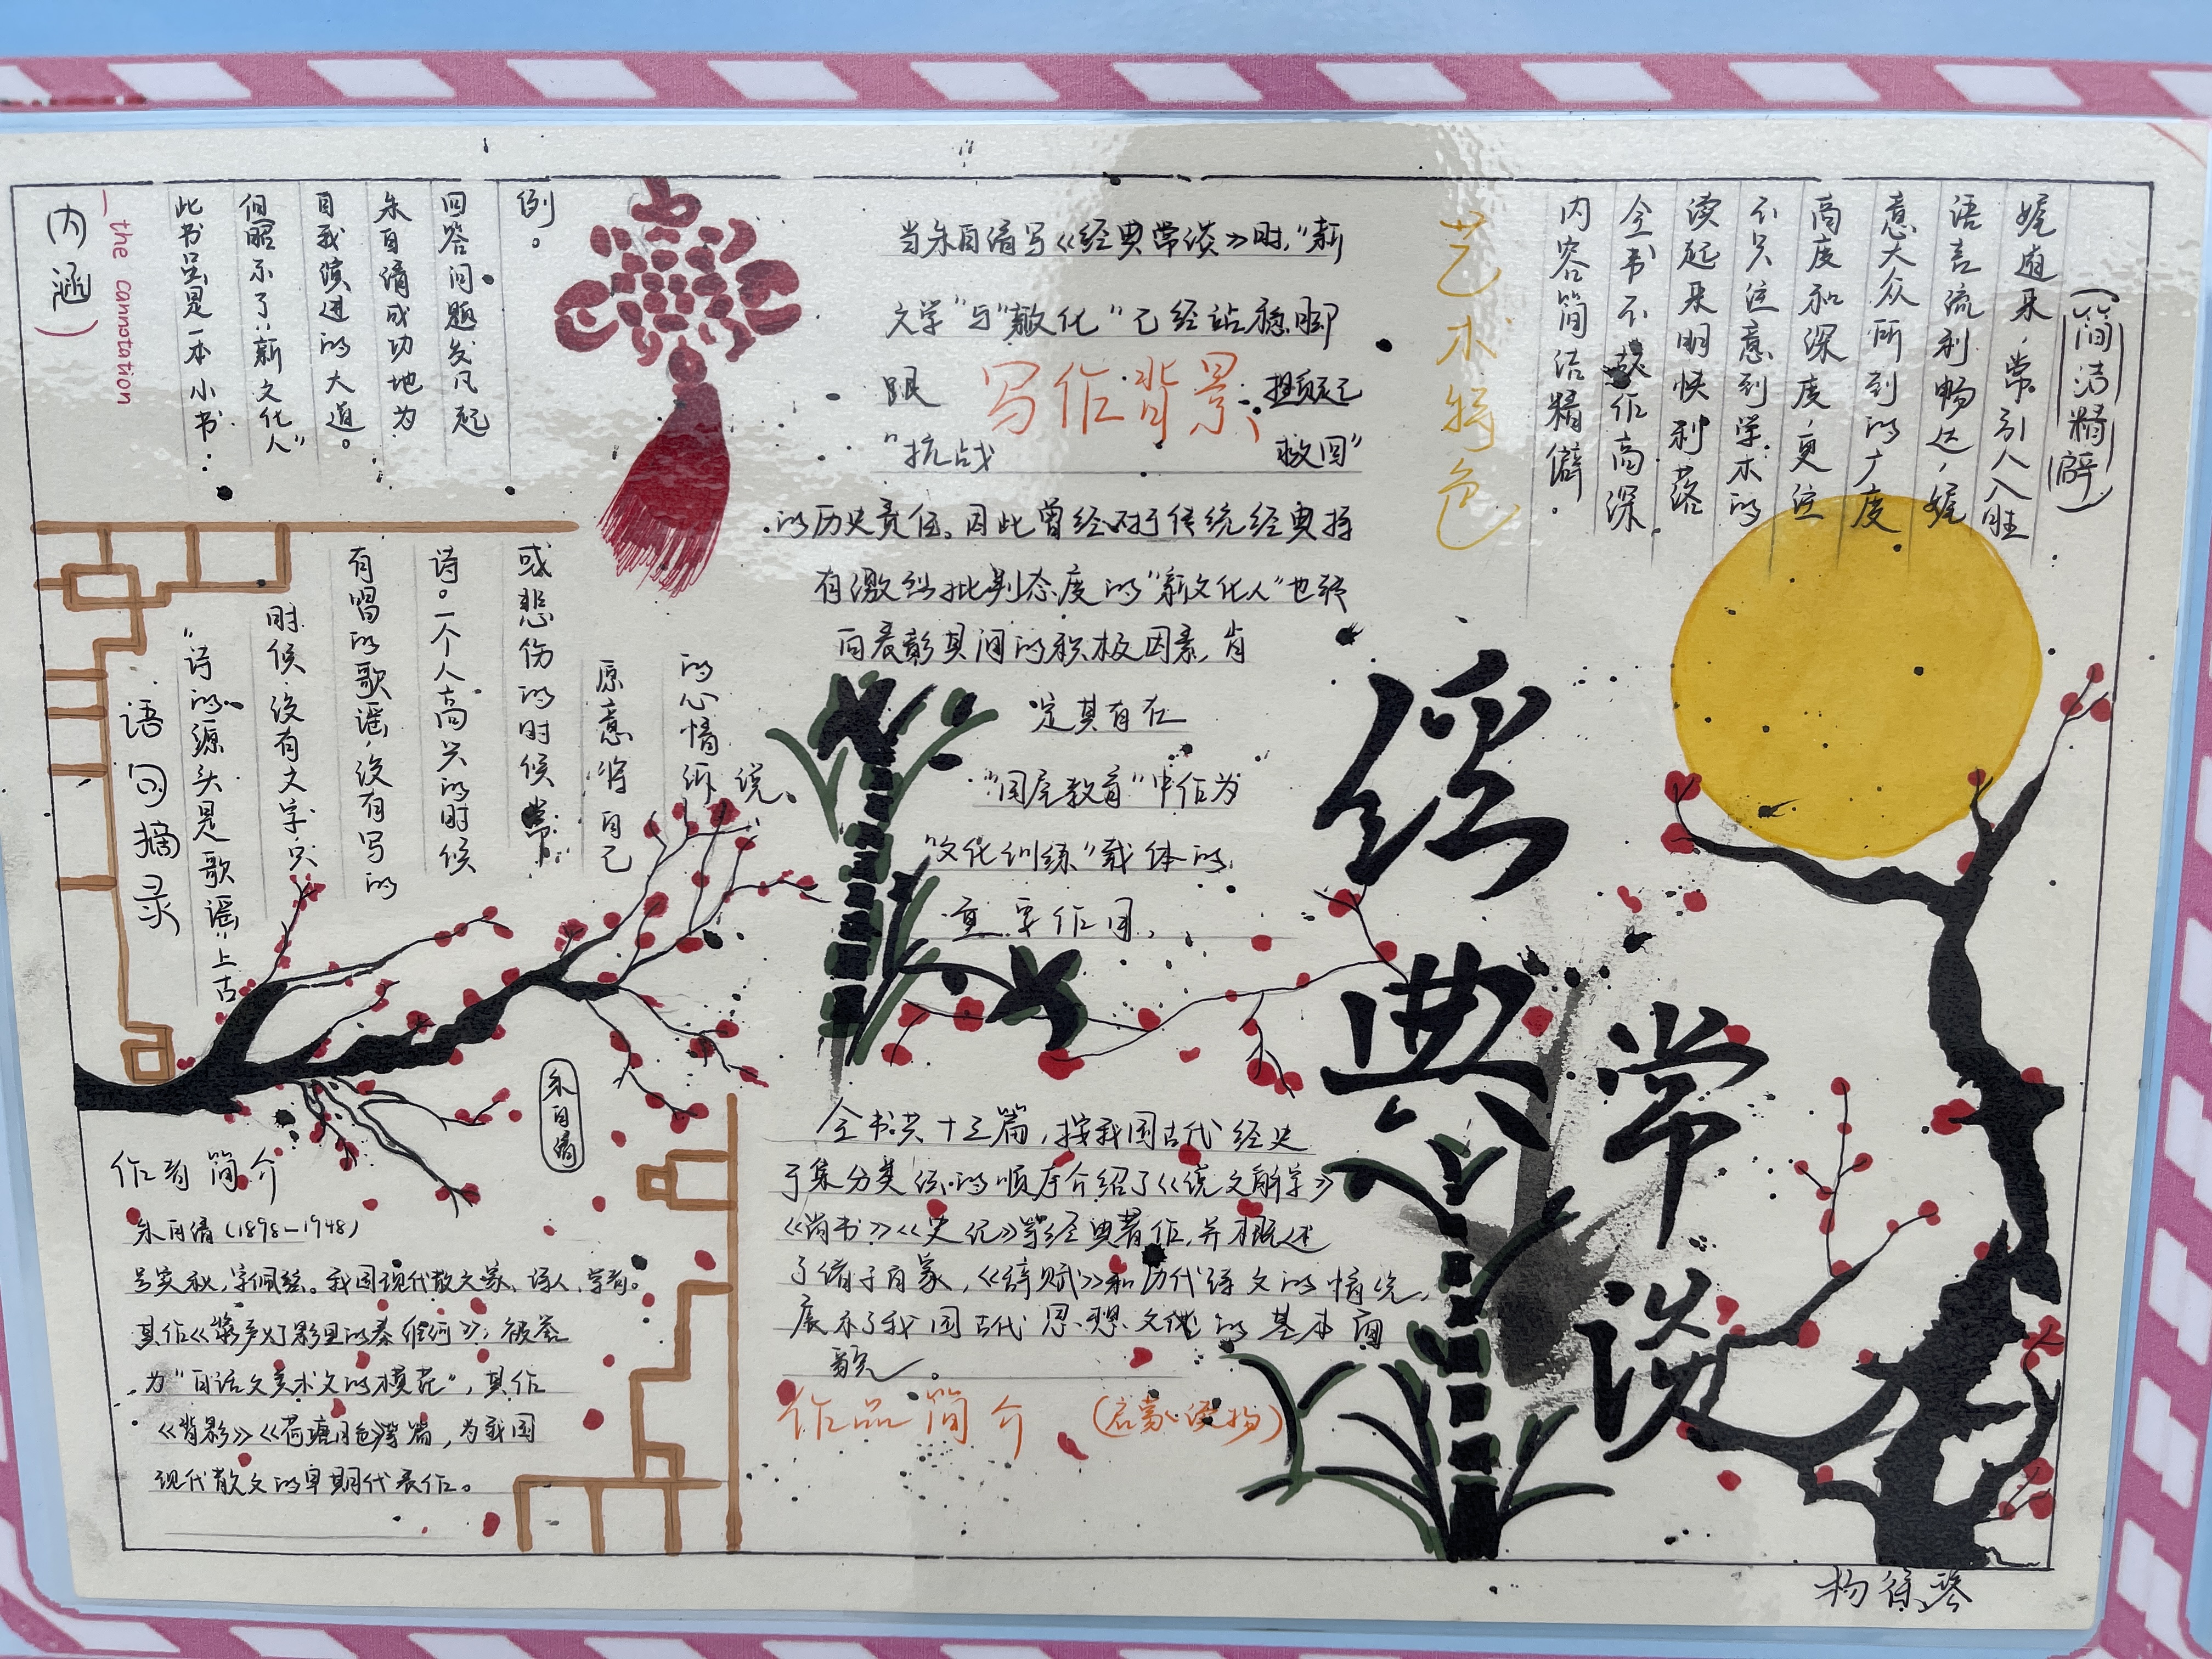 经典常谈
内涵
the cannotation
此书虽是一本小书:
但昭示了“新文化人”
自我演进的大道。
朱自清成功地为
回答问题发凡起
例。
当朱自清写《经典常谈》时,“新
文学”与“文化”已经站稳脚
跟
写作背景
担负起
“抗战
救国”
的历史责任。因此曾经对于传统经典持
有激烈批判态度的“新文化人”也转
而表彰其间的积极因素,肯
定其有在
“国民教育”中作为
“文化训练”载体的
重要作用,
艺术特色
(简洁精辟)
娓道来,常引人入胜
语言流利畅达,娓
意大众所到的广度
高度和深度,更注
不只注意到学术的
读起来明快利落
全书不故作高深
内容简洁精僻.
语句摘录
“诗的源头是歌谣,上古
时候,没有文字,只
有唱的歌谣,没有写的
诗。一个人高兴的时候
或悲伤的时候,常
原意将自己
的心情诉
说、
作者简介
朱自清
朱自清(1898—1948)
号实秋,字佩弦。我国现代散文家、诗人、学者。
其作《桨声灯影里的秦淮河》;被誉
为“白话文美术文的模范”,其作
《背影》《荷塘月色》等篇,为我国
现代散文的早期代表作。
全书共十三篇,按我国古代经史
子集分类的顺序介绍了《说文解字》
《尚书》《史记》等经典著作,并概述
了诸子百家,《辞赋》和历代诗文的情况,
展示了我国古代思想文化的基本面
貌。
作品简介 (启蒙读物)
杨徐琴